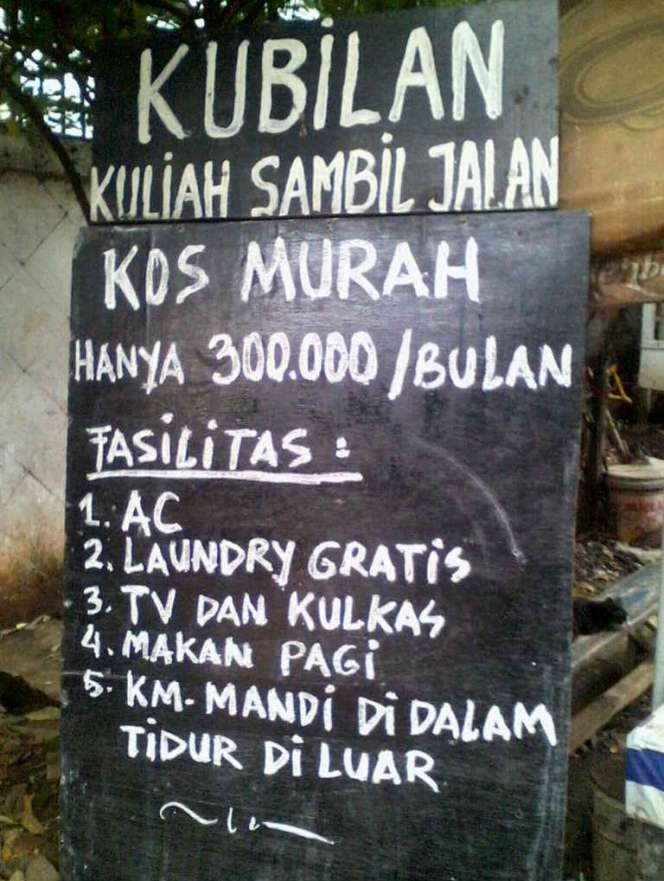 KUBiLAN
KULiAH SAMBiL JALAN
KOS MURAH
HANYA 300.000 /BULAN
FASiLiTAS :
1. AC
2. LAUNDRY GRATiS
3. TV DAN KULKAS
4. MAKAN PAGi
5. KM-MANDi Di DALAM
TiDUR Di LUAR